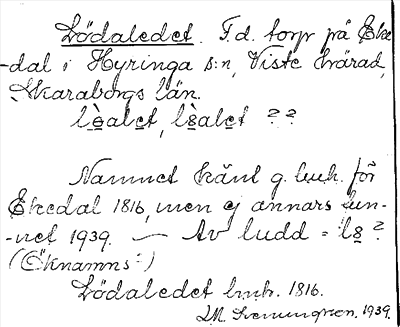 Lödaledet. F.d. torp på Eke
-dal i Hyringa s:n, Viste härad,
Skaraborgs län.
lèalet, lèalet ??
Namnet känt g. huh. för
Ekedal 1816, men ej annars fun-
-net 1939. — Av ludd = ?
(Öknamns?)
Lödaledet huh. 1816.
1939.